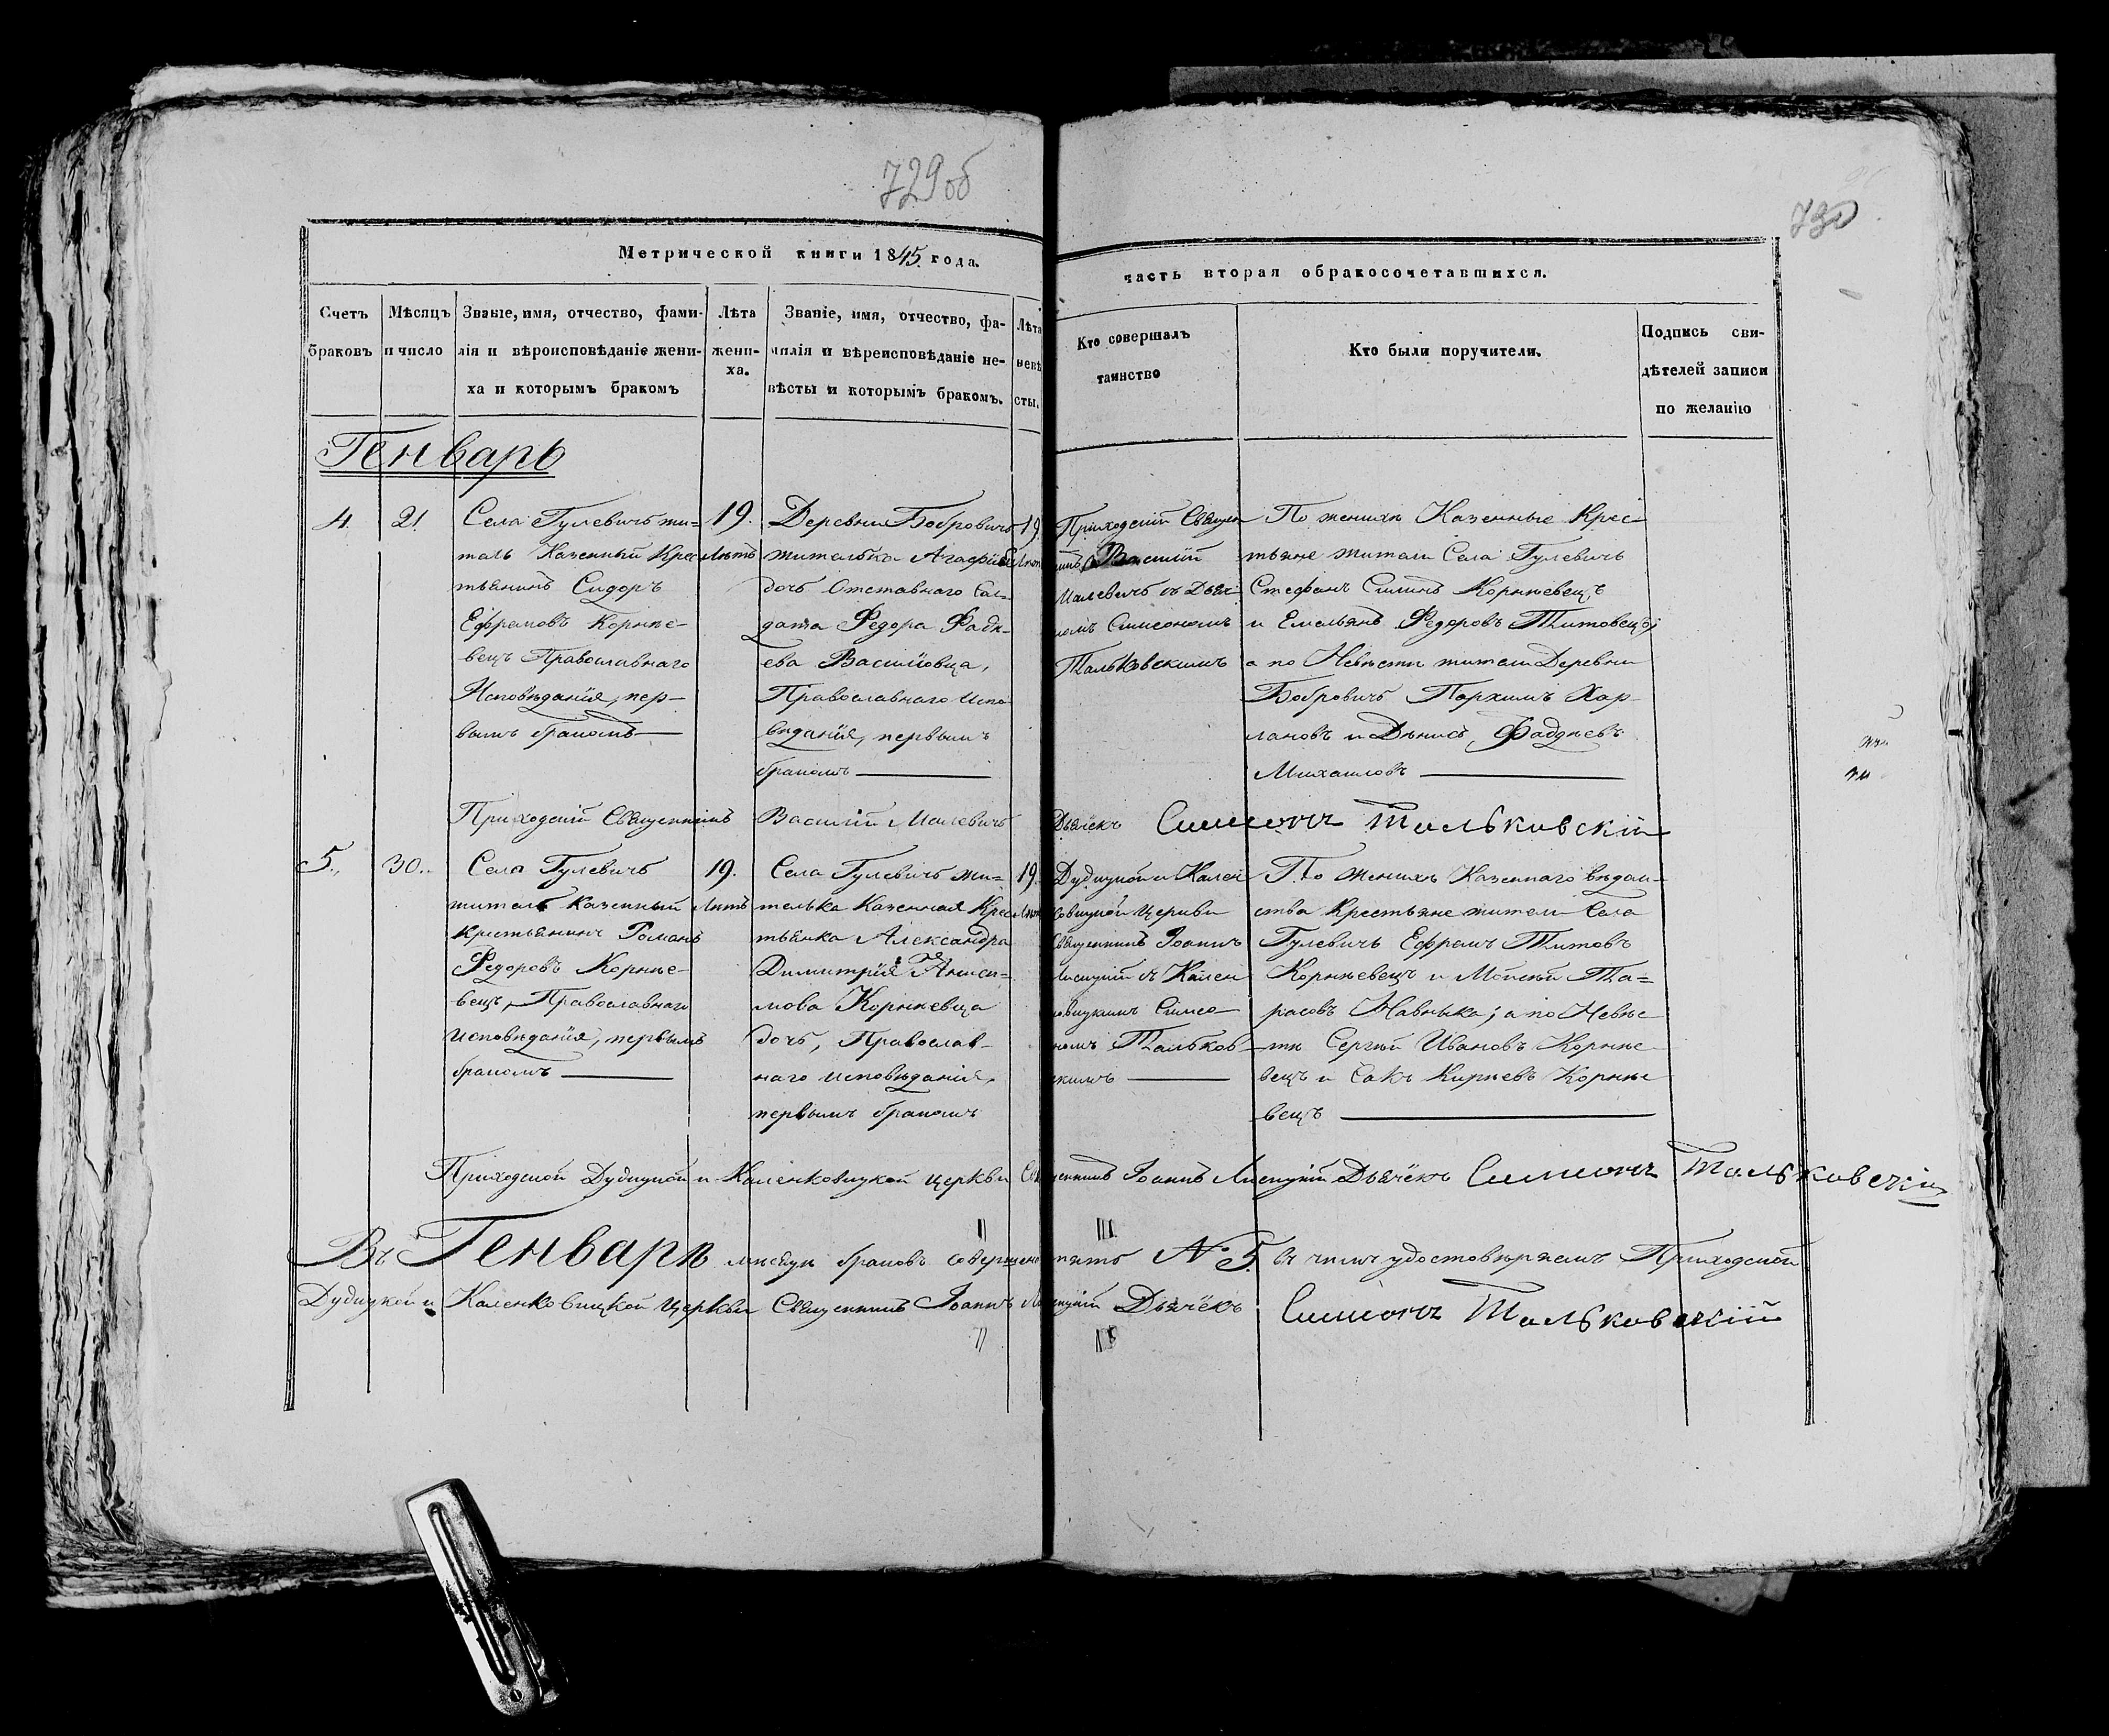 729об
730
Метрической книги 1845. года.
часть вторая обракосочетавшихся.
Счетъ браковъ
Мѣсяцъ и число
Званіе, имя, отчество, фами-
лія и вѣроисповѣданіе жени-
ха и которымъ бракомъ
Лѣта
жени-
ха.
Званіе, имя, отчество, фа-
милія и вѣреисповѣданіе не-
вѣсты и которымъ бракомъ.
Лѣта
невѣ
сты.
Кто совершалъ
таинство
Кто были поручители.
Подпись сви-
дѣтелей записи
по желанію
Генварь
4.
21
Села Гулевичъ жи-
тель Казенный Крес
тьянинъ Сидоръ
Ефремовъ Корнѣе-
вецъ Православнаго
Исповѣданія, пер-
вымъ бракомъ
19.
Лѣтъ
Деревни Бобровичъ
жителька Агафія
дочь Отставнаго Сол-
дата Федора Фадѣ-
ева Василовца,
Православнаго Испо-
вѣданія, первымъ
бракомъ
19.
Лѣт
Приходскій Священ
никъ Василій
Малевичъ съ Дьяч
комъ Симеономъ
Тальковскимъ
По женихѣ Казенные Крес-
тьяне жители Села Гулевичъ
Стефанъ Симинъ Корнѣевецъ
и Емельянъ Федоровъ Титовецъ;
а по Невѣсти жители Деревни
Бобровичъ Пархимъ Хар-
лановъ и Дѣнисъ Фаддѣевъ
Михаиловъ
Приходскій Священникъ Василій Малевичъ Дьячёкъ Симеонъ Тальковскій
5.
30.
Села Гулевичъ
житель Казенный
Крестьянинъ Романъ
Федоровъ Корнѣе-
вецъ, Православнаго
Исповѣданія, первымъ
бракомъ
19.
Лѣтъ
Села Гулевичъ жи-
телька Казенная Крес
тьянка Александра
Димитрія Аниси-
мова Корнѣевца
дочь, Православ-
наго исповѣданія,
первымъ бракомъ
19.
Лѣт
Дудицкой и Кален
ковицкой Церкви
Священникъ Іоаннъ
Лисицкій съ Кален
ковицкимъ Симео
номъ Тальков-
скимъ
По женихѣ Казеннаго вѣдом-
ства Крестьяне жители Села
Гулевичъ Ефремъ Титовъ
Корнѣевецъ и Мойсей Та-
расовъ Жавнѣка; а по Невѣс
ти Сергѣй Ивановъ Корнѣе
вецъ и Сакъ Кирѣевъ Корнѣе
вецъ
Приходской Дудицкой и Каленковицкой Церкви Священникъ Іоаннъ Лисицкій Дьячёкъ Симеонъ Тальковскій
Въ Генварѣ мѣсяцѣ браковъ совершено пять № 5. въ чемъ удостовѣряемъ Приходской
Дудицкой и Каленковицкой Церкви Священникъ Іоаннъ Лисицкій Дьячёкъ Симеонъ Тальковскій